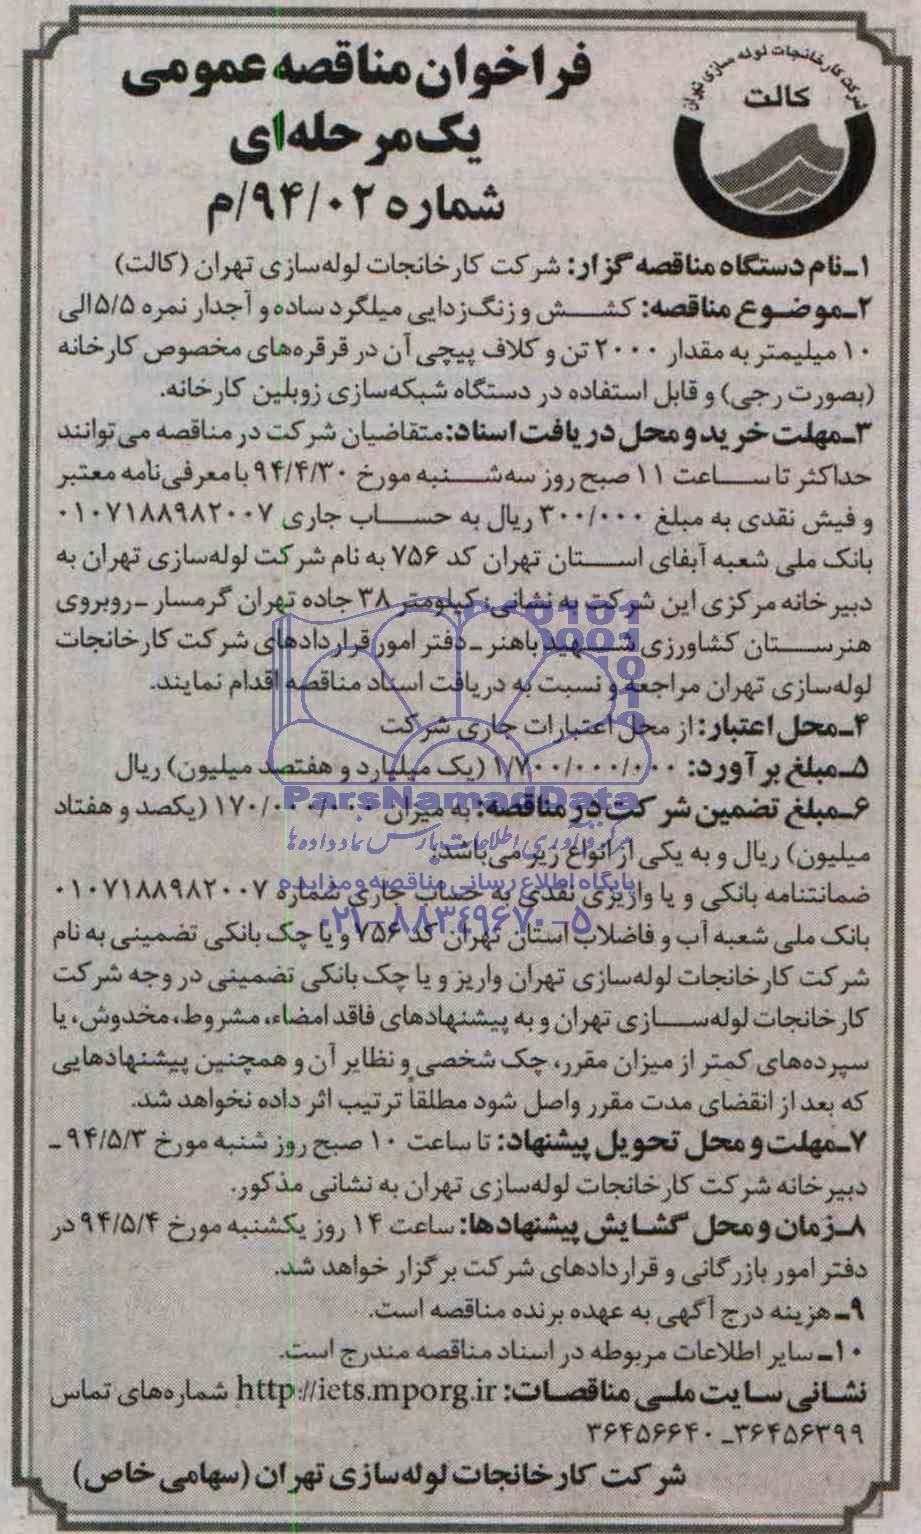 شرکت کارخانجات لوله سازی تهران
کالت
فراخوان مناقصه عمومی
یک مرحله‌ای
شماره ۹۴/۰۲/م
۱ـ نام دستگاه مناقصه گزار: شرکت کارخانجات لوله‌سازی تهران (کالت)
۲ـ موضوع مناقصه: کشش و زنگ‌زدایی میلگرد ساده و آجدار نمره ۵/۵ الی
۱۰ میلیمتر به مقدار ۲۰۰۰ تن و کلاف پیچی آن در قرقره‌های مخصوص کارخانه
(بصورت رجی) و قابل استفاده در دستگاه شبکه‌سازی زوبلین کارخانه.
۳ـ مهلت خرید و محل دریافت اسناد: متقاضیان شرکت در مناقصه می‌توانند
حداکثر تا ساعت ۱۱ صبح روز سه‌شنبه مورخ ۹۴/۴/۳۰ با معرفی‌نامه معتبر
و فیش نقدی به مبلغ ۳۰۰/۰۰۰ ریال به حساب جاری ۰۱۰۷۱۸۸۹۸۲۰۰۷
بانک ملی شعبه آبفای استان تهران کد ۷۵۶ به نام شرکت لوله‌سازی تهران به
دبیرخانه مرکزی این شرکت به نشانی: کیلومتر ۳۸ جاده تهران گرمسار ـ روبروی
هنرستان کشاورزی شهید باهنر ـ دفتر امور قراردادهای شرکت کارخانجات
لوله‌سازی تهران مراجعه و نسبت به دریافت اسناد مناقصه اقدام نمایند.
۴ـ محل اعتبار: از محل اعتبارات جاری شرکت
۵ـ مبلغ برآورد: ۱/۷۰۰/۰۰۰/۰۰۰ (یک میلیارد و هفتصد میلیون) ریال
ParsNamadData
۶ـ مبلغ تضمین شرکت در مناقصه: به میزان ۱۷۰/۰۰۰/۰۰۰ (یکصد و هفتاد
مرکز فرآوری اطلاعات پارس نماد داده‌ها
میلیون) ریال و به یکی از انواع زیر می‌باشد:
پایگاه اطلاع رسانی مناقصه و مزایده
ضمانتنامه بانکی و یا واریزی نقدی به حساب جاری شماره ۰۱۰۷۱۸۸۹۸۲۰۰۷
۰۲۱-۸۸۳۴۹۶۷۰-۵
بانک ملی شعبه آب و فاضلاب استان تهران کد ۷۵۶ و یا چک بانکی تضمینی به نام
شرکت کارخانجات لوله‌سازی تهران واریز و یا چک بانکی تضمینی در وجه شرکت
کارخانجات لوله‌سازی تهران و به پیشنهادهای فاقد امضاء، مشروط، مخدوش، یا
سپرده‌های کمتر از میزان مقرر، چک شخصی و نظایر آن و همچنین پیشنهادهایی
که بعد از انقضای مدت مقرر واصل شود مطلقاً ترتیب اثر داده نخواهد شد.
۷ـ مهلت و محل تحویل پیشنهاد: تا ساعت ۱۰ صبح روز شنبه مورخ ۹۴/۵/۳ ـ
دبیرخانه شرکت کارخانجات لوله‌سازی تهران به نشانی مذکور.
۸ـ زمان و محل گشایش پیشنهادها: ساعت ۱۴ روز یکشنبه مورخ ۹۴/۵/۴ در
دفتر امور بازرگانی و قراردادهای شرکت برگزار خواهد شد.
۹ـ هزینه درج آگهی به عهده برنده مناقصه است.
۱۰ـ سایر اطلاعات مربوطه در اسناد مناقصه مندرج است.
نشانی سایت ملی مناقصات: http://iets.mporg.ir شماره‌های تماس
۳۶۴۵۶۳۹۹ـ ۳۶۴۵۶۶۴۰
شرکت کارخانجات لوله‌سازی تهران (سهامی خاص)